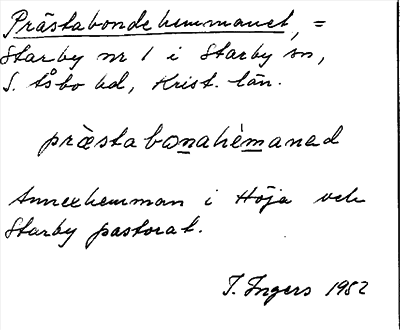 Prästabondehemmanet, =
Starby nr 1 i Starby sn,
S. Åsbo hd, Krist. län.
præ̀stabonahèmanad
Annexhemman i Höja och
Starby pastorat.
I. Ingers 1952